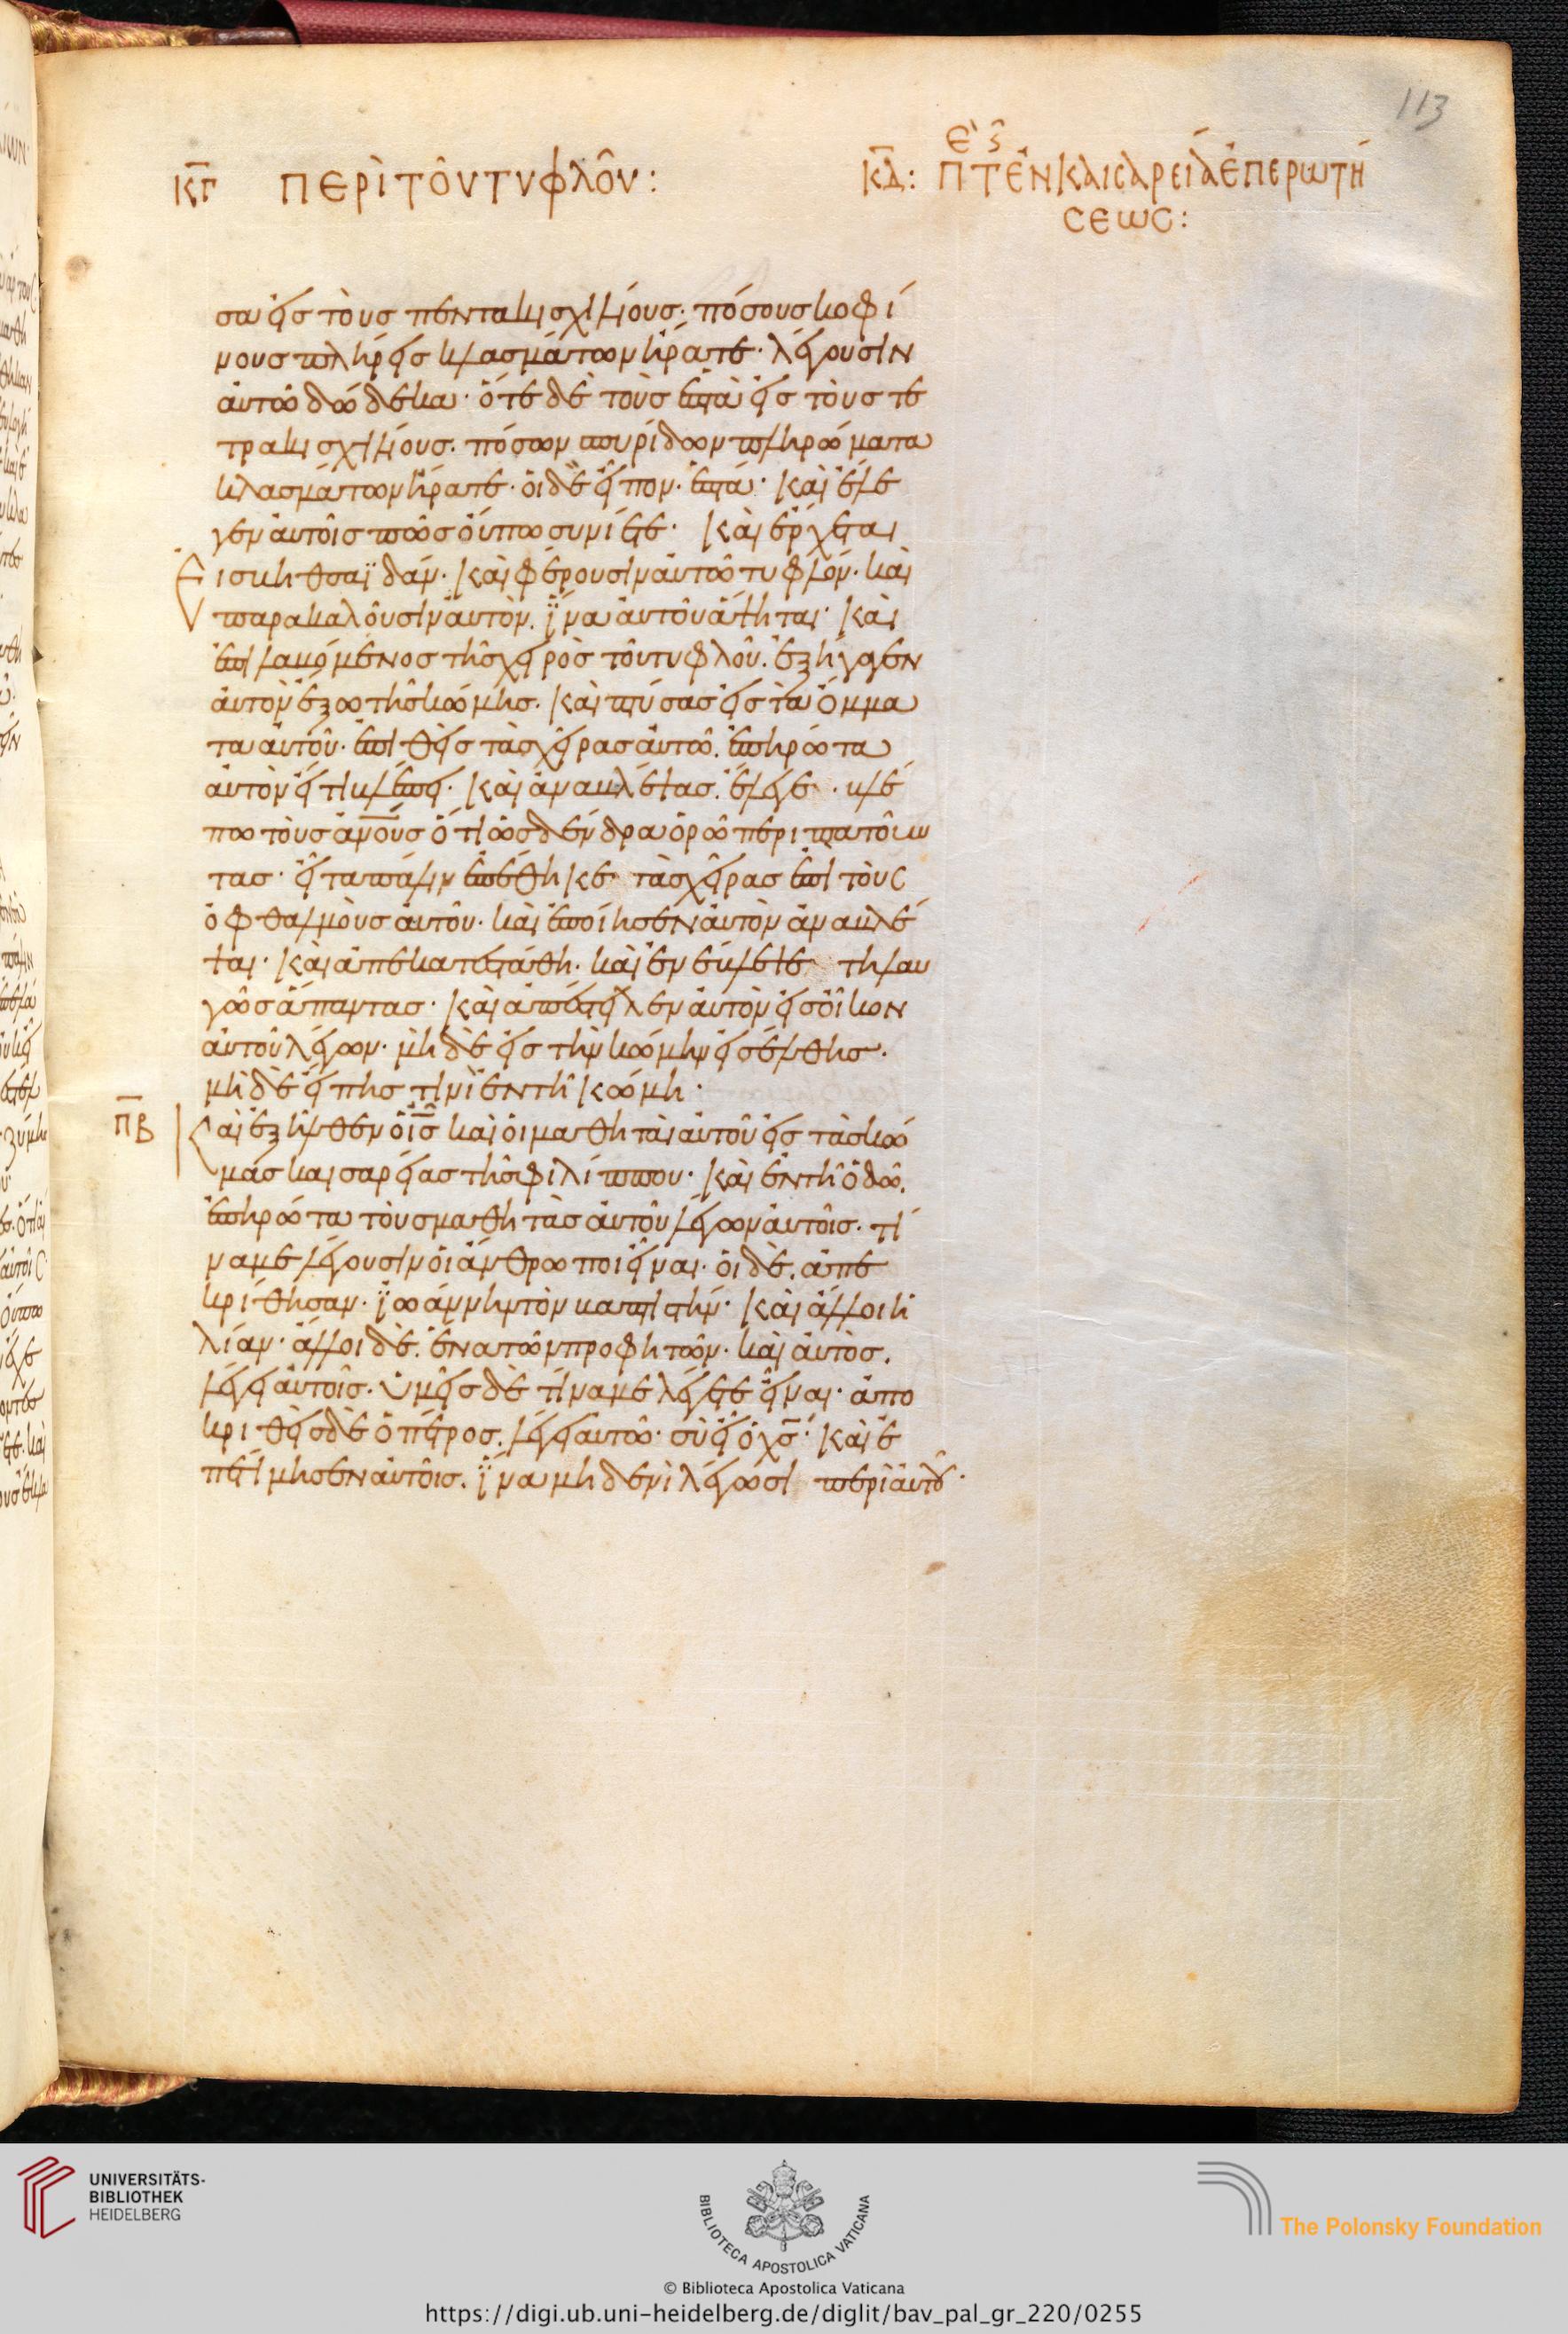 113
κγ περὶ τοῦ τυφλοῦ:
κδ: π τ ἐν καισαρείᾳ ἐπερωτή
σεως:
σα εἰς τοὺς πεντακισχιλίους· πόσους κοφί
νους πλήρεις κλασμάτων ἤρατε· λέγουσιν
αὐτῶ δώδεκα· ὅτε δὲ τοὺς ἑπτὰ εἰς τοὺς τε
τρακισχιλίους· πόσων σπυρίδων πληρώματα
κλασμάτων ἤρατε· οἱ δὲ εἶπον· ἑπτά· καὶ ἔλε
γεν αὐτοῖς πῶς οὔπω συνίετε· καὶ ἔρχεται
εἰς βηθσαϊδάν· καὶ φέρουσιν αὐτῶ τυφλόν· καὶ
παρακαλοῦσιν αὐτὸν. ἵνα αὐτοῦ ἅψηται· καὶ
ἐπιλαβόμενος τῆς χειρὸς τοῦ τυφλοῦ. ἐξήγαγεν
αὐτὸν ἔξω τῆς κώμης· καὶ πτύσας εἰς τὰ ὄμμα
τα αὐτοῦ· ἐπιθεὶς τὰς χεῖρας αὐτῶ. ἐπηρώτα
αὐτὸν εἴ τι βλέπει· καὶ ἀναβλέψας. ἔλεγε· βλέ
πω τοὺς ἀνους ὅτι ὡς δένδρα ὁρῶ περιπατοῦν
τας· εἶτα πάλιν ἐπέθηκε τὰς χεῖρας ἐπὶ τοὺς
ὀφθαλμοὺς αὐτοῦ· καὶ ἐποίησεν αὐτὸν ἀναβλέ
ψαι· καὶ ἀπεκατεστάθη· καὶ ἐνέβλεψε τηλαυ
γῶς ἅπαντας· καὶ ἀπέστειλεν αὐτὸν εἰς οἶκον
αὐτοῦ λέγων· μὴ δὲ εἰς τὴν κώμην εἰσέλθης·
μὴ δὲ εἴπης τινὶ ἐν τῆ κώμη·
πβ καὶ ἐξῆλθεν ὁ ις καὶ οἱ μαθηταὶ αὐτοῦ εἰς τὰς κώ
μας καισαρείας τῆς φιλίππου· καὶ ἐν τῆ ὁδῶ.
ἐπηρώτα τοὺς μαθητὰς αὐτοῦ λέγων αὐτοῖς· τί
να με λέγουσιν οἱ ἄνθρωποι εἶναι· οἱ δὲ. ἀπε
κρίθησαν· ἰωάννην τὸν βαπτιστήν· καὶ ἄλλοι ἠ
λίαν· ἄλλοι δὲ. ἕνα τῶν προφητῶν· καὶ αὐτὸς.
λέγει αὐτοῖς· ὑμεῖς δὲ τίνα με λέγετε εἶναι· ἀπο
κριθεὶς δὲ ὁ πέτρος. λέγει αὐτῶ· σὺ εἶ ὁ χς· καὶ ἐ
πετίμησεν αὐτοῖς. ἵνα μηδενὶ λέγωσι περὶ αὐτοῦ·
UNIVERSITÄTS-
BIBLIOTHEK
HEIDELBERG
BIBLIOTECA APOSTOLICA VATICANA
The Polonsky Foundation
© Biblioteca Apostolica Vaticana
https://digi.ub.uni-heidelberg.de/diglit/bav_pal_gr_220/0255